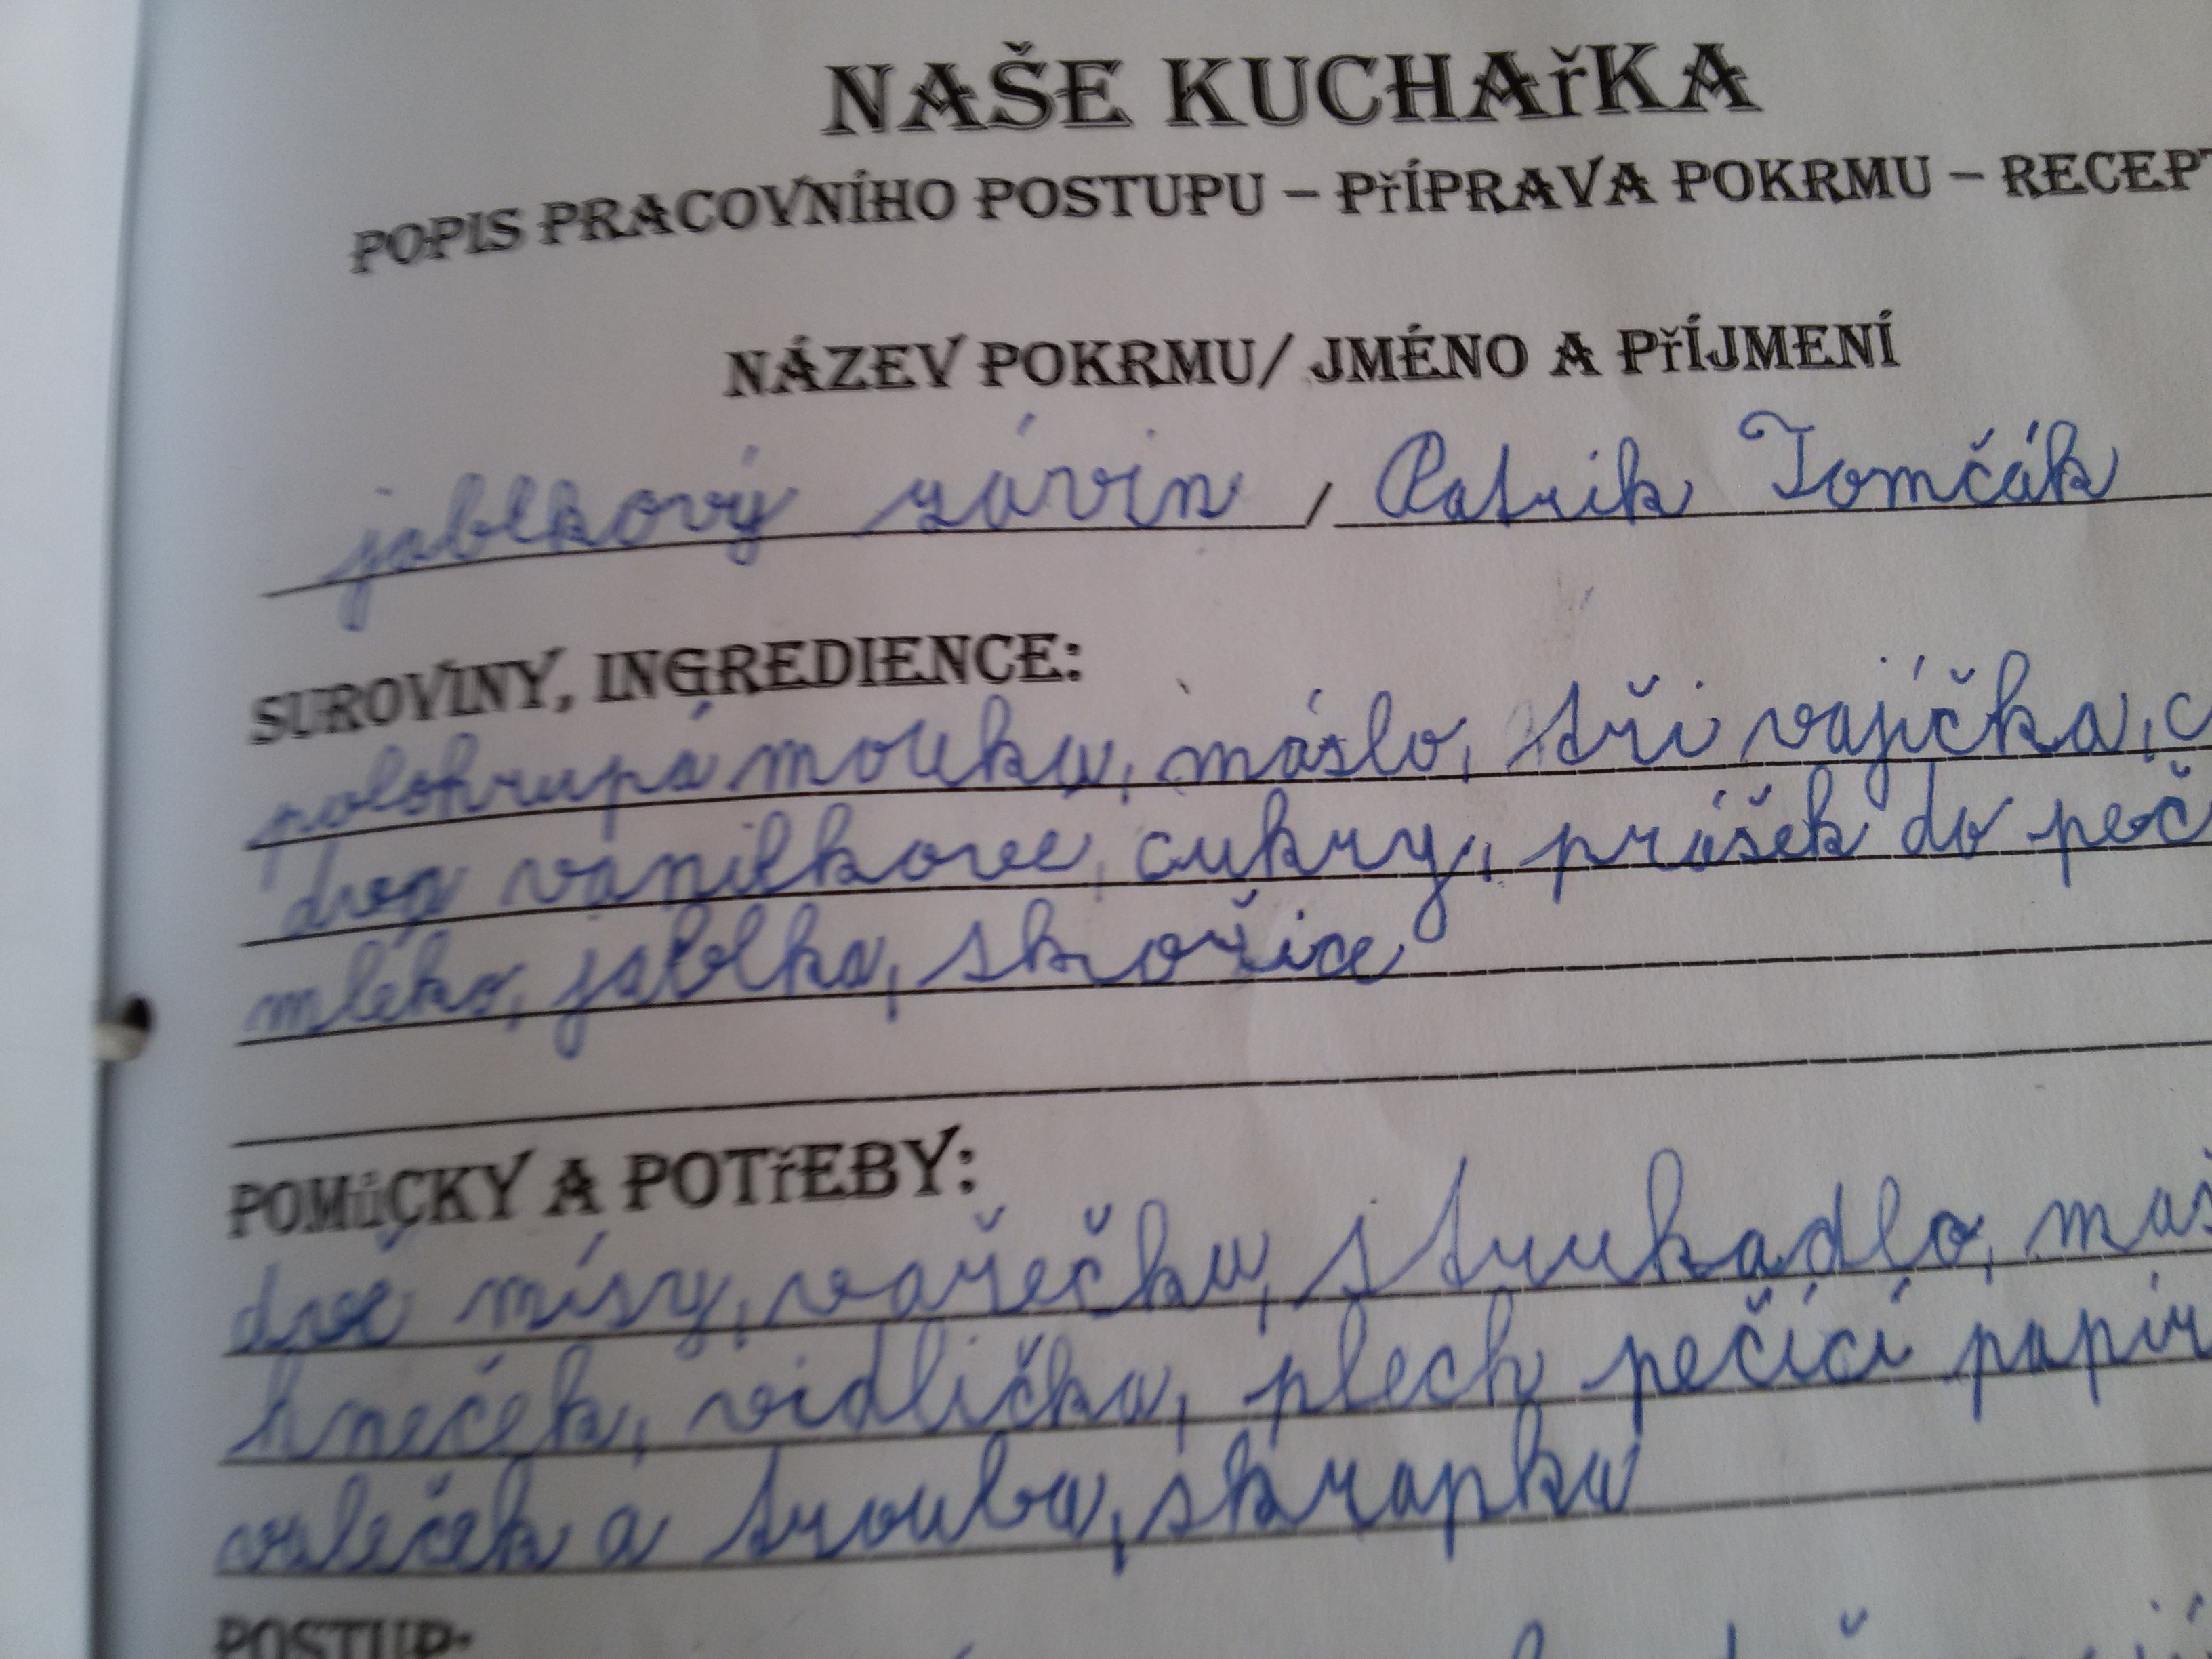 NAŠE KUCHAŘKA
POPIS PRACOVNÍHO POSTUPU – PŘÍPRAVA POKRMU – RECEPT
NÁZEV POKRMU/ JMÉNO A PŘÍJMENÍ
jablkový závin / Patrik Tomčák
SUROVINY, INGREDIENCE:
polohrupá mouka, máslo, tři vajíčka, c
vanilkove, cukry, prášek do peč
mléko, jablka, skořice
POMŮCKY A POTŘEBY:
dvě mísy, vařečka, struhadlo, maš
hneček, vidlička, plech pečící papír
vsleček a trouba, škrapka
POSTUP: